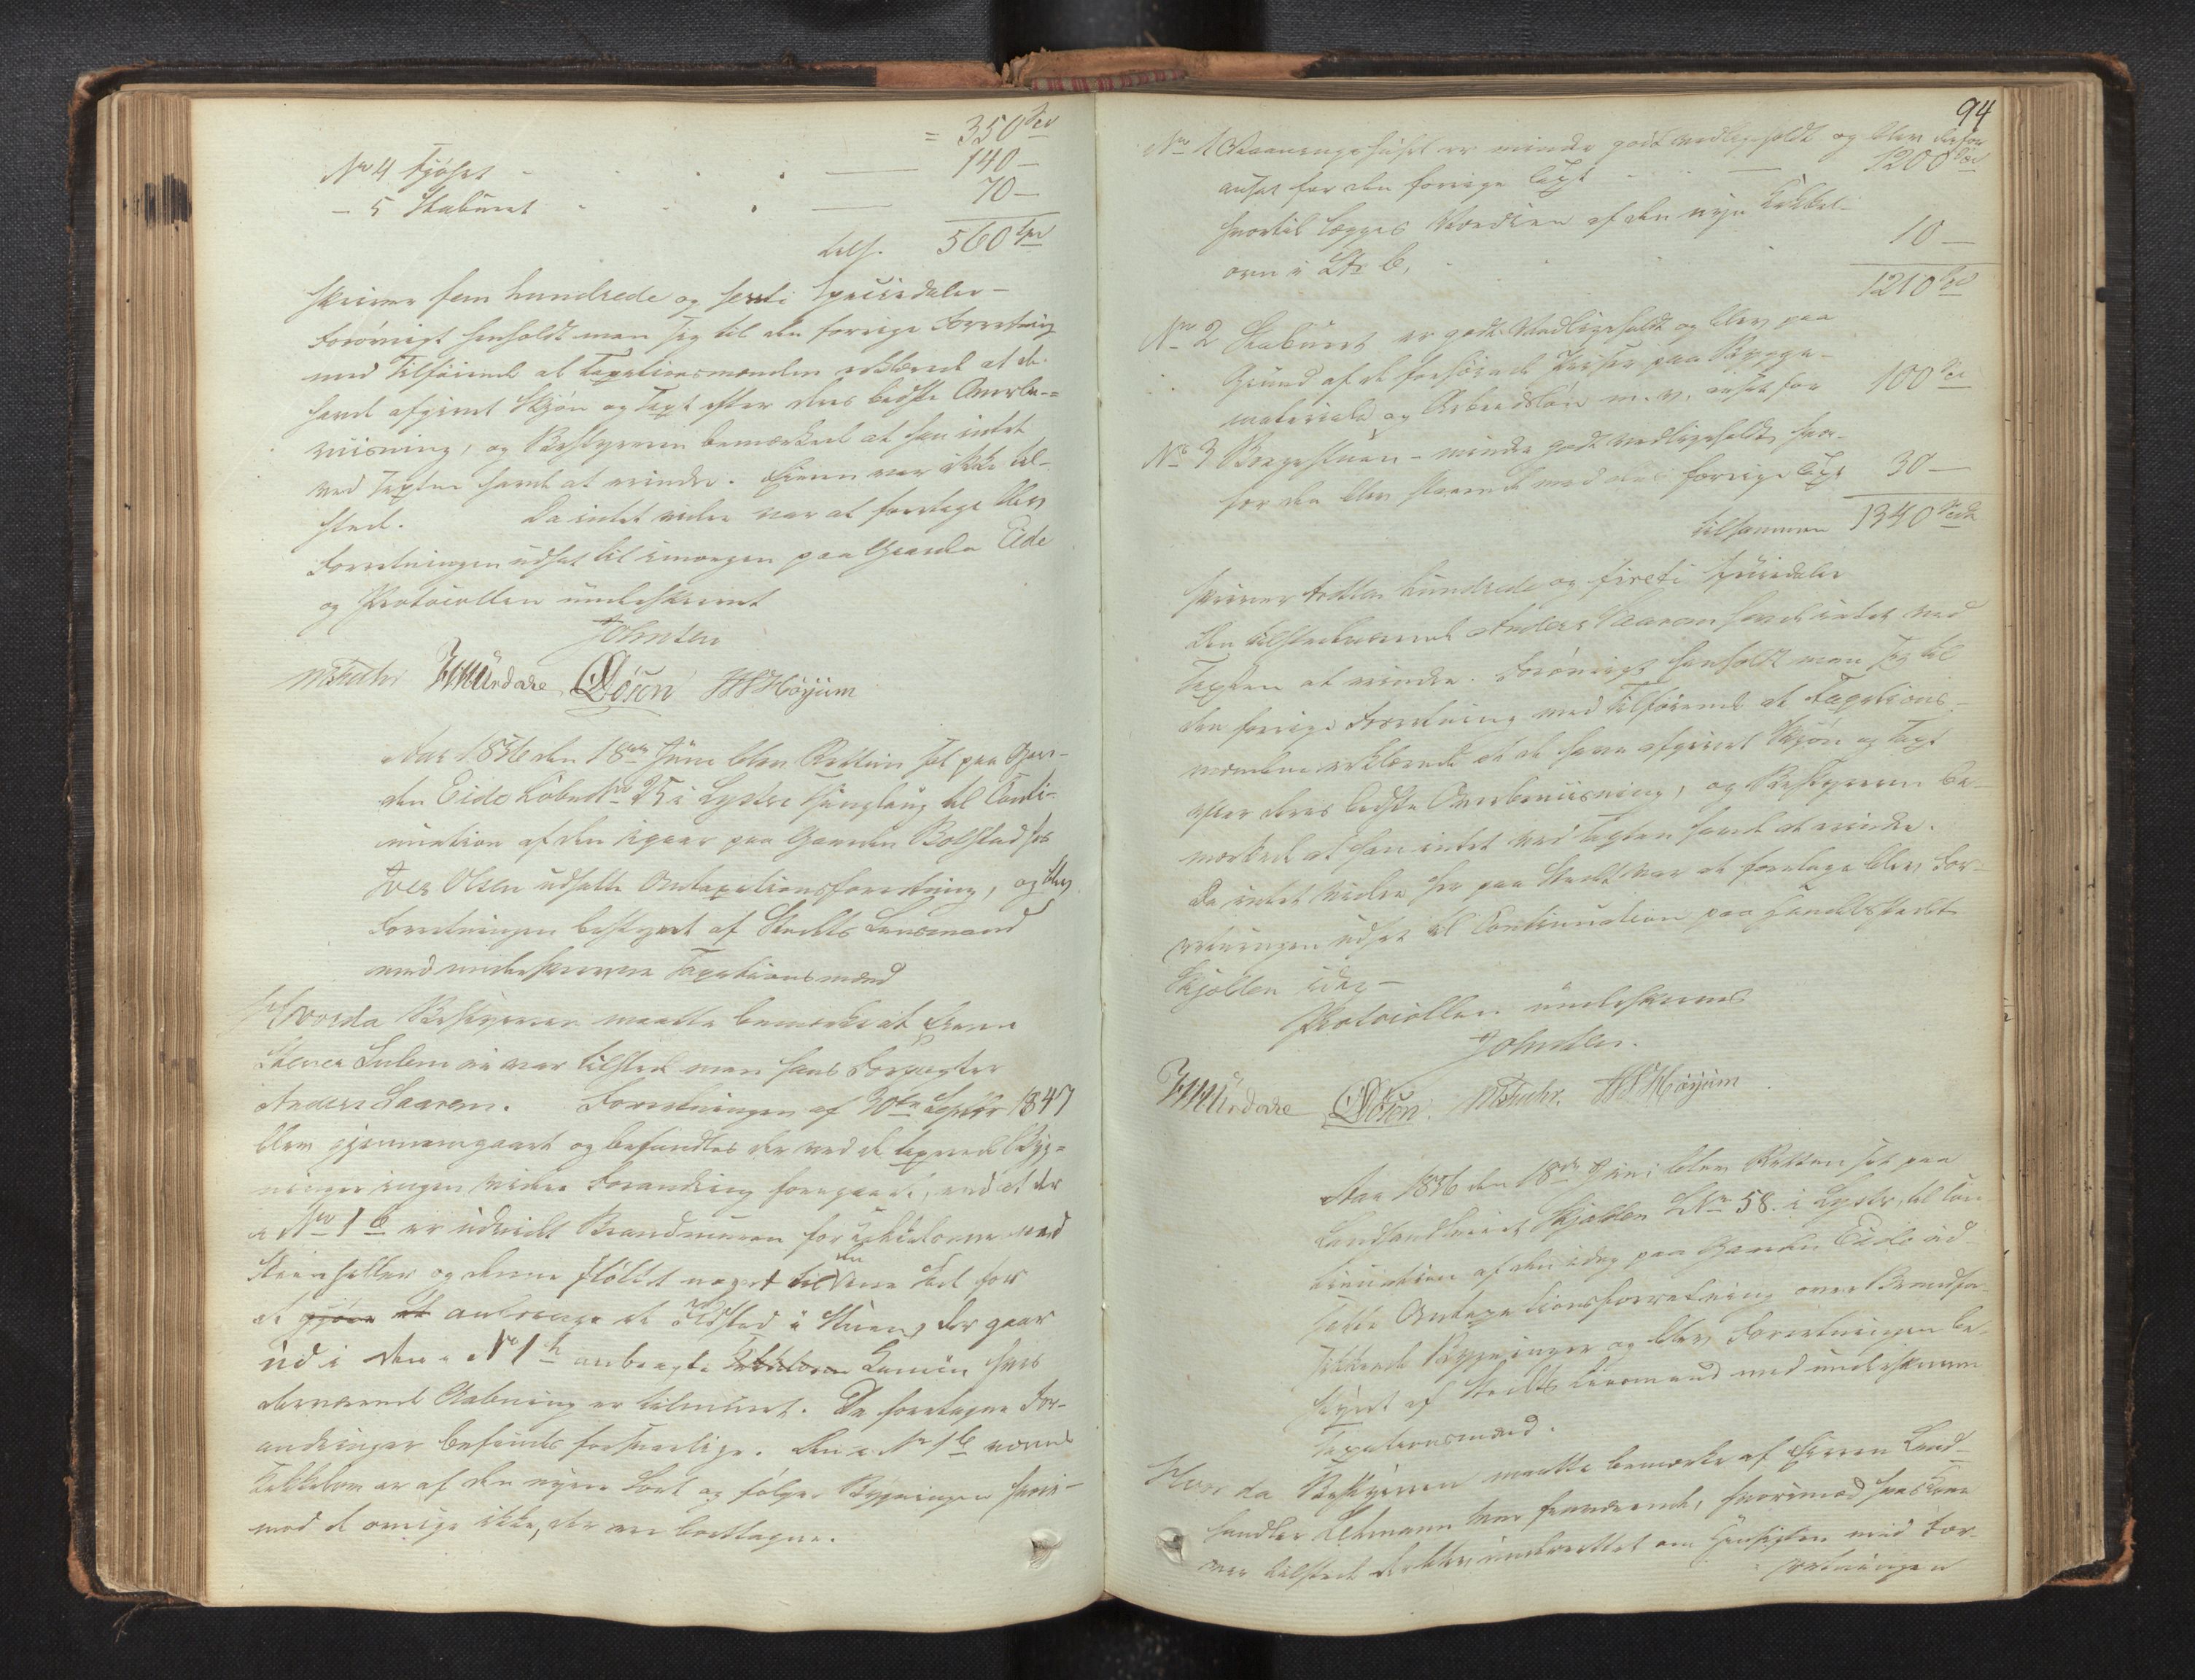 = 350 Spd
No 4 Fjøset — 140 —
— 5 Stabured — 70 —
tils. 560 Spd
skriver fem hundrede og sexti Speciedaler —
Forøvrigt henholdt man sig til den forrige Forretning
med Tilføiende at Taxationsmændene erklærede at de
havde afgivet Skjøn og Taxt efter deres bedste Overbe-
viisning, og Bestyreren bemærkede at han intet
ved Taxten havde at erindre. Eieren var ikke til-
stede. Da intet videre var at foretage blev
Forretningen udsat til imorgen paa Gaarden Eide
og Protocollen underskrevet
Johnsen
HHHöyum
Aar 1856 den 18de Juni blev Retten sat paa Gaar-
den Eide Løbe No 25 i Lyster Thinglaug til Conti-
nuation af den igaar paa Gaarden Bolstad hos
Iver Olsen udsatte Omtaxationsforretning, og blev
Forretningen bestyret af Stedets Lensmand
med underskrevne Taxationsmænd
Hvorda Bestyreren maatte bemærke at Eieren
var tilstede men hans Forpagter
Anders Forretningen af 30te Septbr 1847
blev gjennemgaaet og befandtes der ved de taxerede Byg-
ninger ingen videre Forandring foregaaet, end at der
i No 1 b er udvidt Brandmuren for Kakkelovne med
Steenheller og denne flyttet noget til den ene Side for
at gjøre et anbringe et Ildsted i Stuen, der gaar
ud i den i No 1 h anbragte Kakkelovn Kamin, hvis
derværende Aabning er tilmuret. De foretagne For-
andringer befindes forsvarlige. Den i No 1 b værende
Kakkelovn er af den nyere Sort og følger Bygningen hvori-
mod de øvrige ikke, der ere borttagne.
94
No 1 Vaaningshuset er mindre godt vedligeholdt og blev derfor
ansat for den forrige Taxt — 1200 Spd
hvortil lægges Værdien af den nye Kakkel-
ovn i Litr b, 10 —
1210 Spd
No 2 Stabured er godt vedligeholdt og blev paa
Grund af de forhøiede Priser paa Bygge-
materiale og Arbeidsløn m. v. ansat for 100 Spd
No 3 Borgestuen — mindre godt vedligeholdt, hvor-
for den blev staaende med den forrige Taxt 30 —
tilsammen 1340 Spd
skriver tretten hundrede og fireti Speciedaler
Den tilstedeværende Anders havde intet ved
Taxten at erindre. Forøvrigt henholdt man sig til
den forrige Forretning med Tilføiende at Taxations-
mændene erklærede at de have afgivet Skjøn og Taxt
efter deres bedste Overbeviisning, og Bestyreren be-
mærkede at han intet ved Taxten havde at erindre.
Da intet videre her paa Stedet var at foretage blev For-
retningen udsat til Continuation paa Handelsstedet
Skjolden idag —
Protocollen underskreves
Johnsen.
HHHöyum
Aar 1856 den 18de Juni blev Retten sat paa
Landhandleriet Skjolden LNo 58 i Lyster, til Con-
tinuation af den idag paa Gaarden Eide ud-
satte Omtaxationsforretning over Brandfor-
sikkrede Bygninger og blev Forretningen be-
styret af Stedets Lensmand med underskrevne
Taxationsmænd.
Hvor da Bestyreren maatte bemærke at Eieren Land-
handler Lehmann var fraværende, hvorimod hans Kone
var tilstede underrettet om Hensigten med For-
retningen